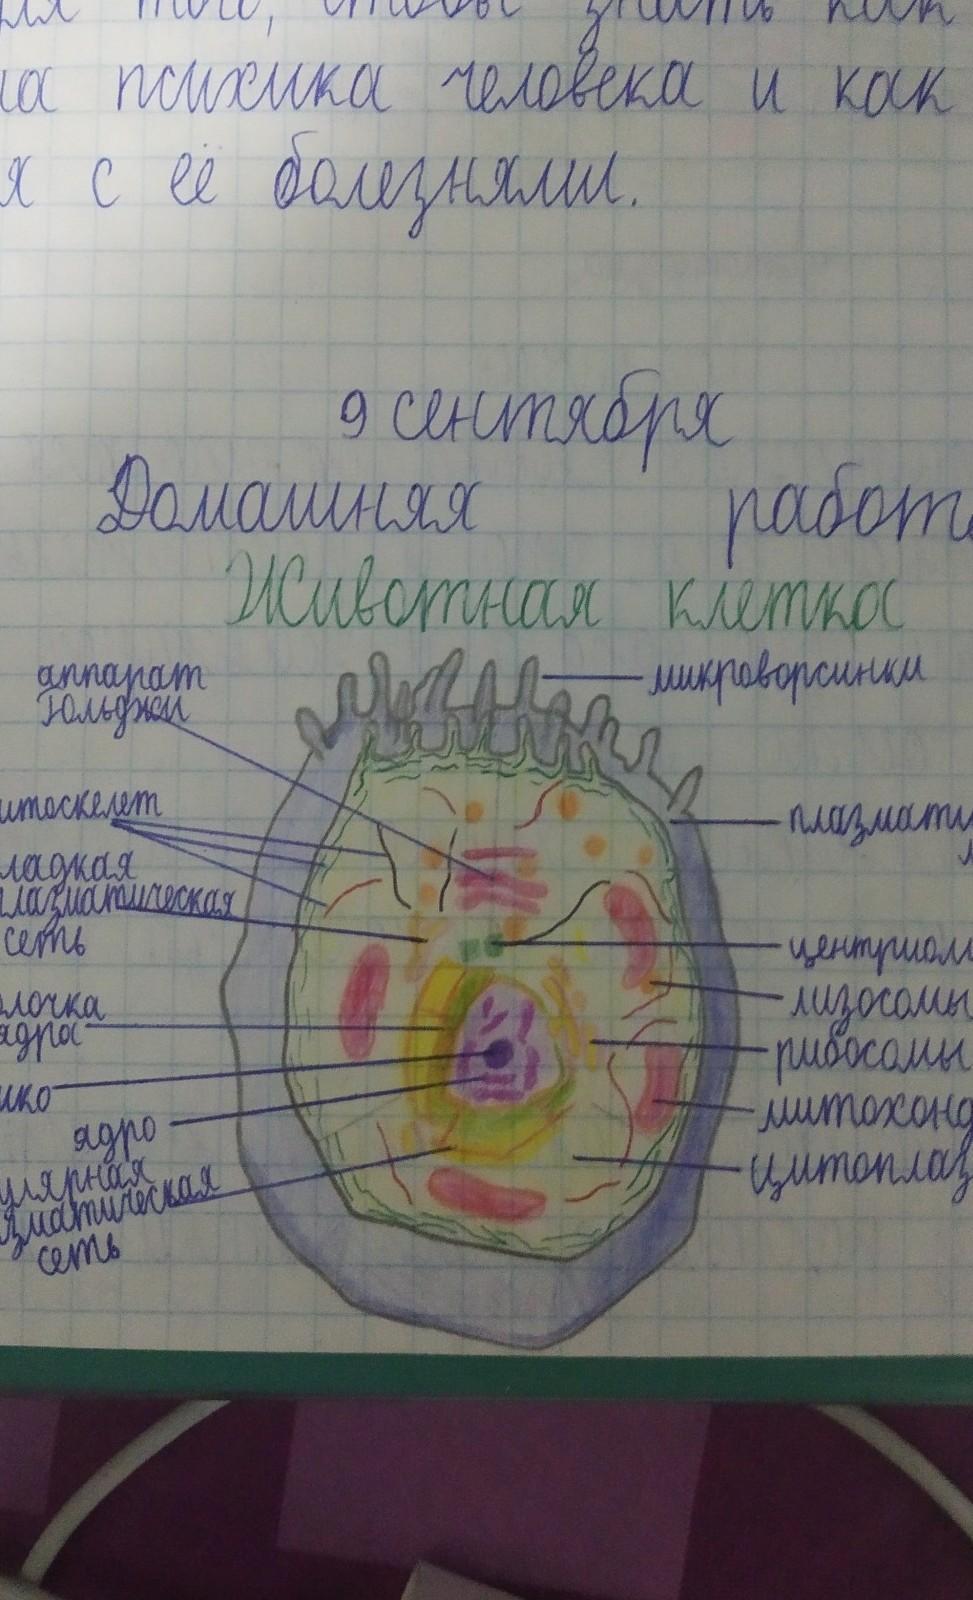 для того, чтобы знать как
на психика человека и как
я с её болезнями.
9 сентября
Домашняя работ
Животная клетка
аппарат
Гольджи
микроворсинки
итоскелет
плазмати
ладкая
плазматическая
сеть
центриол
лизосомы
олочка
ядра
рибосомы
ико
митохонд
ядро
цитоплаз
улярная
азматическая
сеть